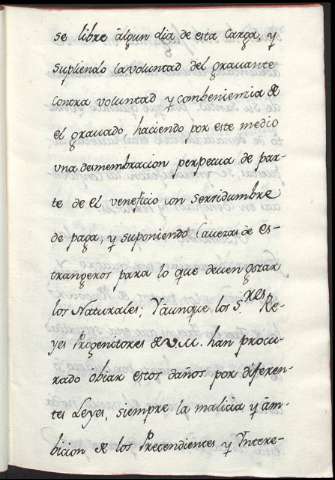 se libre algun dia de esta Carga, y
supliendo la voluntad del gravante
contra voluntad y combenienzia de
el gravado, haciendo por este medio
una desmembracion perpetua de par-
te de el veneficio con serbidumbre
de paga, y suponiendo Cavezas de es-
trangeros para lo que deven gozar
los Naturales; Y aunque los S.res Re-
yes Progenitores de V.M. han procu-
rado obiar estos daños por diferen-
tes Leyes, siempre la malicia y am-
bicion de los Pretendientes y Intere-